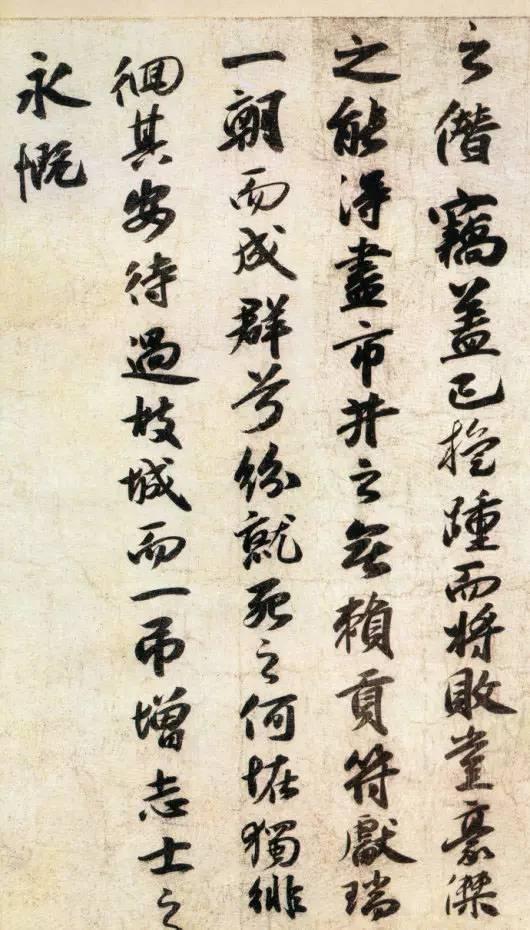 之僭竊蓋已旋踵而将敗豈豪傑
之能得盡市井之無賴貢符獻瑞
一朝而成群兮紛就死之何恠獨徘
徊其安待過故城而一吊增志士之
永慨